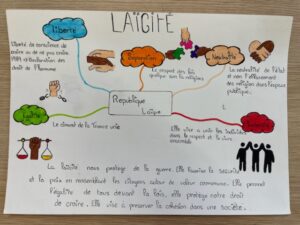 LAÏCITÉ
Liberté
Liberté de conscience, de
croire ou de ne pas croire.
1789 → Déclaration des
droit de l'homme
Séparation
Le respect des lois
quelque soit la religions
Neutralité
La neutralité de l'état
et non l'effacement
des religion dans l'espace
publique.
République
Laïque
Egalité
Le ciment de la France unie
Elle vise a unir les individus
dans le respect et la vivre
ensemble
La laïcité nous protege de la guerre. Elle favorise la sécurité
et la paix en rassemblant les citoyens autour de valeur commune. Elle permet
l'égalité de tous devant la loi, elle protège notre droit
de croire. Elle vise à préserver la cohésion dans une société.